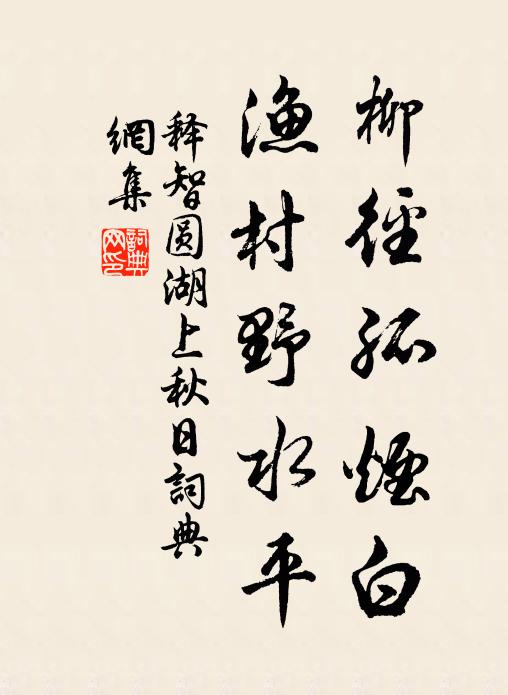 柳径孤煙白
渔村野水平
释智圆湖上秋日詞典
網集
詞典
网印